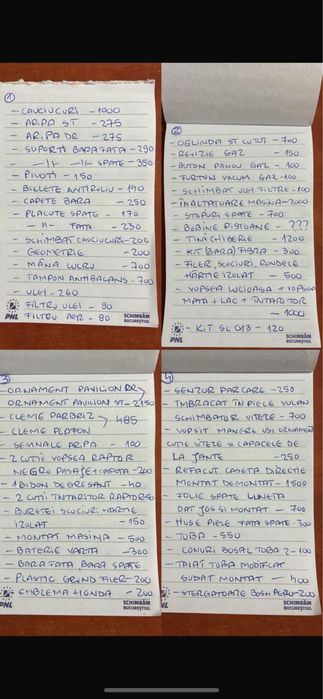 1
- CAUCIUCURI - 1000
- ARIPA ST - 275
- ARIPA DR - 275
- SUPORTI BARA FATA - 290
-||- -||- SPATE - 350
- PIVOTI - 150
- BIELETE ANTIRULIU - 140
- CAPETE BARA - 250
- PLACUTE SPATE - 170
- -||- FATA - 230
- SCHIMBAT CAUCIUCURI - 200
GEOMETRIE - 200
- MÂNA LUCRU - 700
- TAMPON ANTIBALANS - 700
- ULEI - 260
- FILTRU ULEI - 90
FILTRU AER - 80
PNL
SCHIMBĂM
BUCUREȘTIUL
2
- OGLINDA ST CUTUT - 700
- REVIZIE GAZ - 150
- BUTON PANOU GAZ - 100
- FURTUN VACUM GAZ - 100
- SCHIMBAT ULEI FILTRE - 100
- INALTATOARE MASINA - 2000
- STOPURI SPATE - 700
- BOBINE PISTOANE - ???
- TINICHIGERIE - 1200
- KIT (BARA) FIBRA - 300
- FILER, SCOCIURI, RONDELE
HÂRTIE IZOLAT - 500
- VOPSEA LUCIOASA + VOPSEA
MATA + LAC + INTARITOR
- 1000
- KIT SL 013 - 120
PNL
SCHIMBĂM
BUCUREȘTIUL
3
ORNAMENT PAVILION DR
ORNAMENT PAVILION ST - 2150
- CLEME PARBRIZ
- CLEME PLAFON
485
- SEMNALE ARIPA - 100
- 2 CUTII VOPSEA RAPTOR
NEGRO PASAJE + CAPOTA - 200
- 1 BIDON DEGRESANT - 40
- 2 CUTII INTARITOR RAPTOR 50
- BURETEI SCOCIURI + HARTIE
IZOLAT - 150
- MONTAT MASINA - 500
- BATERIE VARTA - 300
- BARA FATA BARA SPATE
- PLASTIC GRUND FILER - 200
- EMBLEMA HONDA - 200
PNL
SCHIMBĂM
BUCUREȘTIUL
4
- SENZOR PARCARE - 250
- IMBRACAT IN PIELE VOLAN
SCHIMBATOR VITEZE - 700
- VOPSIT MANERE USI ORNAMENT
CUTIE VITEZE + CAPACELE DE
LA JANTE - 250
- REFACUT CASETA DIRECTIE
MONTAT DEMONTAT - 1500
- FOLIE SPATE LUNETA
DAT JOS SI MONTAT - 700
- HUSE PIELE FATA SPATE - 300
- TOBA - 550
- CONURI BOSAL TOBA 2 - 100
- TAIAT TOBA MODIFICAT
SUDAT MONTAT - 400
- STERGATOARE BOSH AERO - 200
PNL
SCHIMBĂM
BUCUREȘTIUL